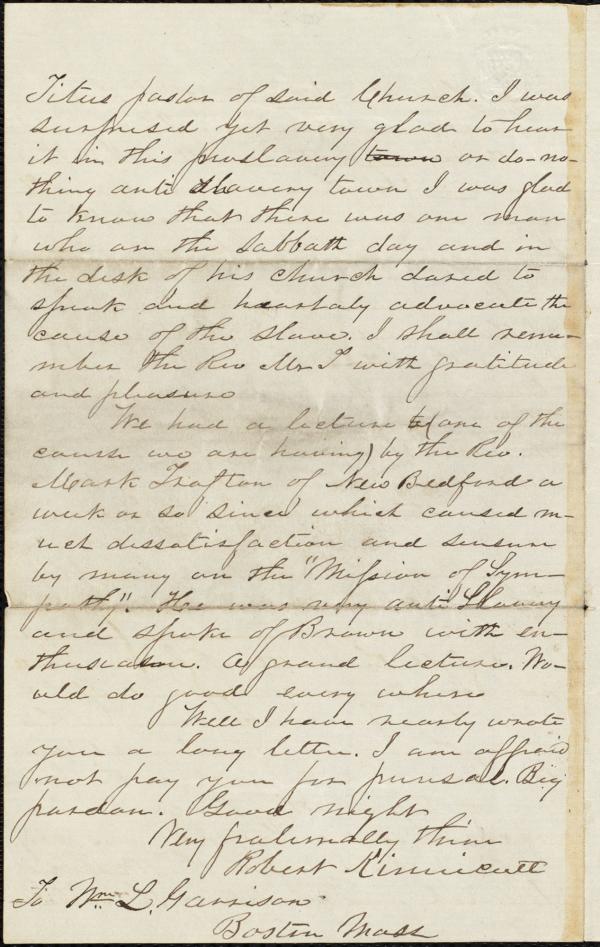 Titus pastor of said Church. I was
surprised yet very glad to hear
it in this proslavery town or do-no-
thing anti slavery town I was glad
to know that there was one man
who on the Sabbath day and in
the desk of his church dared to
speak and heartaly advocate the
cause of the slave. I shall reme-
mber the Rev Mr T with gratitude
and pleasure
We had a lecture (one of the
course we are having) by the Rev.
Mark Trafton of New Bedford a
week or so since which caused m-
uch dissatisfaction and sensure
by many on the "Mission of Sym-
pathy". He was very anti Slavery
and spoke of Brown with en-
thusiasm. A grand lecture. Wo-
uld do good every where
Well I have nearly wrote
you a long letter. I am affraid
not pay you for perusal. Beg
pardon. Good night
Very fraternally thine
Robert Kinnicutt
To Wm L. Garrison
Boston Mass